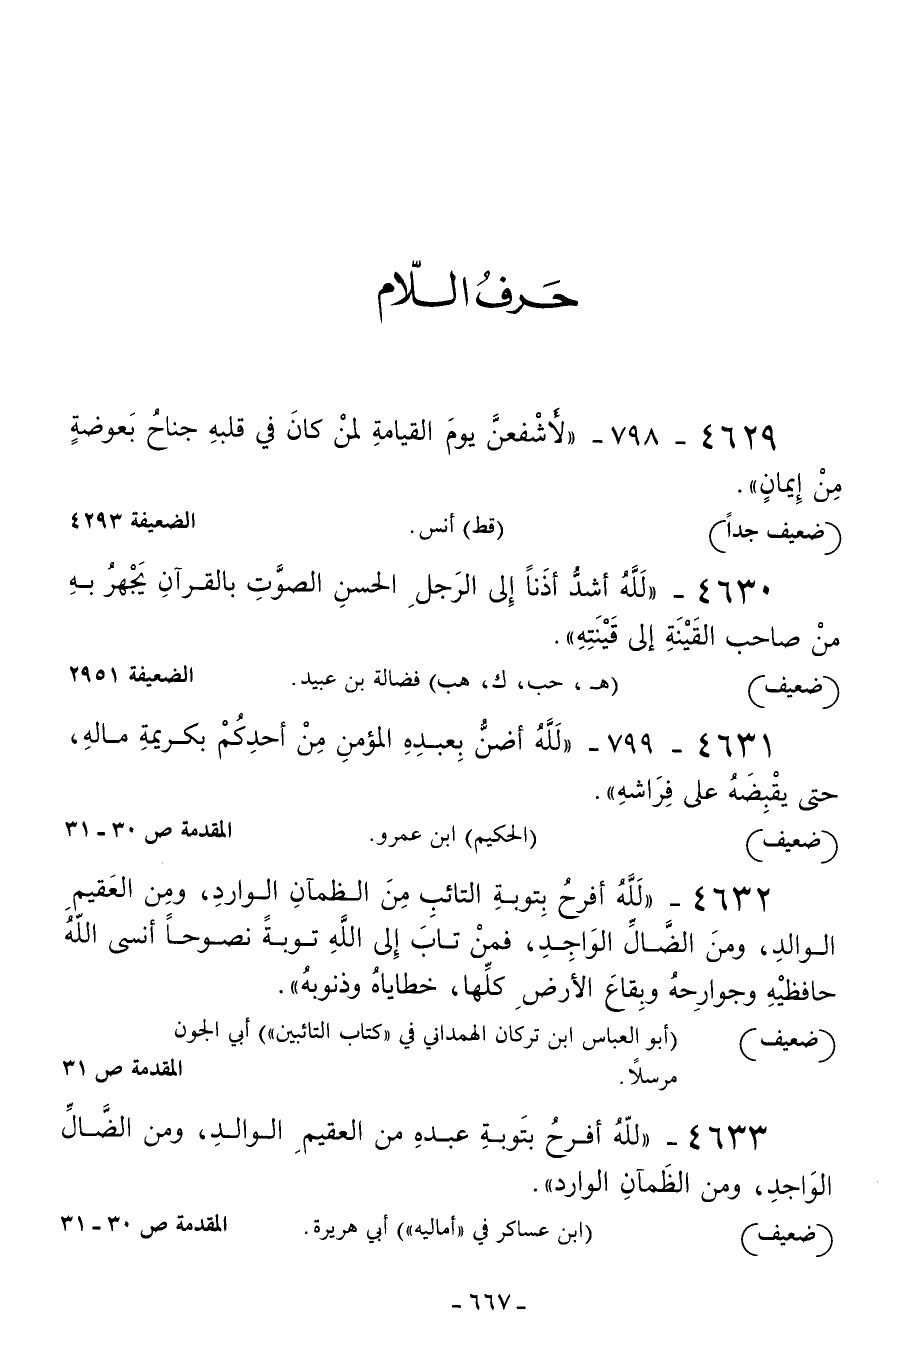 حَـرفُ الـلّام
٤٦٢٩ ـ ٧٩٨ ـ «لَأَشْفعنَّ يومَ القيامةِ لمنْ كانَ في قلبهِ جناحُ بَعوضةٍ
مِنْ إِيمانٍ» .
(ضعيف جداً) (قط) أنس . الضعيفة ٤٢٩٣
٤٦٣٠ ـ «لَلَّهُ أشدُّ أذَناً إِلى الرَجلِ الحسنِ الصوَّتِ بالقـرآنِ يَجْهرُ بـهِ
منْ صاحب القَيْنَةِ إلى قَيْنَتِهِ» .
(ضعيف) (هـ ، حب، ك، هب) فضالة بن عبيد . الضعيفة ٢٩٥١
٤٦٣١ ـ ٧٩٩ ـ «لَلَّهُ أضنُّ بِعبـدِهِ المؤمنِ مِنْ أحدِكُمْ بكـريمةِ مـالهِ،
حتى يقْبِضَهُ على فِرَاشهِ» .
(ضعيف) (الحكيم) ابن عمرو . المقدمة ص ٣٠ ـ ٣١
٤٦٣٢ ـ «لَلَّهُ أفرحُ بِتوبـةِ التائبِ مِنَ الـظمآنِ الـواردِ، ومِن العَقيمِ
الـوالدِ، ومنَ الضَّـالِّ الوَاجِـدِ، فمنْ تـابَ إِلى اللَّهِ تـوبـةً نصـوحـاً أنسى اللَّهُ
حافظيْهِ وجوارِحهُ وبِقاعَ الأرضِ كلِّها، خطاياهُ وذنوبهُ» .
(ضعيف) (أبو العباس ابن تركان الهمداني في «كتاب التائبين») أبي الجون
مرسلاً . المقدمة ص ٣١
٤٦٣٣ ـ «للّهُ أفـرحُ بتَوبـةِ عبـدهِ من العقيمِ الـوالـدِ، ومن الضَّـالِّ
الوَاجدِ، ومن الظَمآنِ الوارد» .
(ضعيف) (ابن عساكر في «أماليه») أبي هريرة . المقدمة ص ٣٠ ـ ٣١
ـ ٦٦٧ ـ